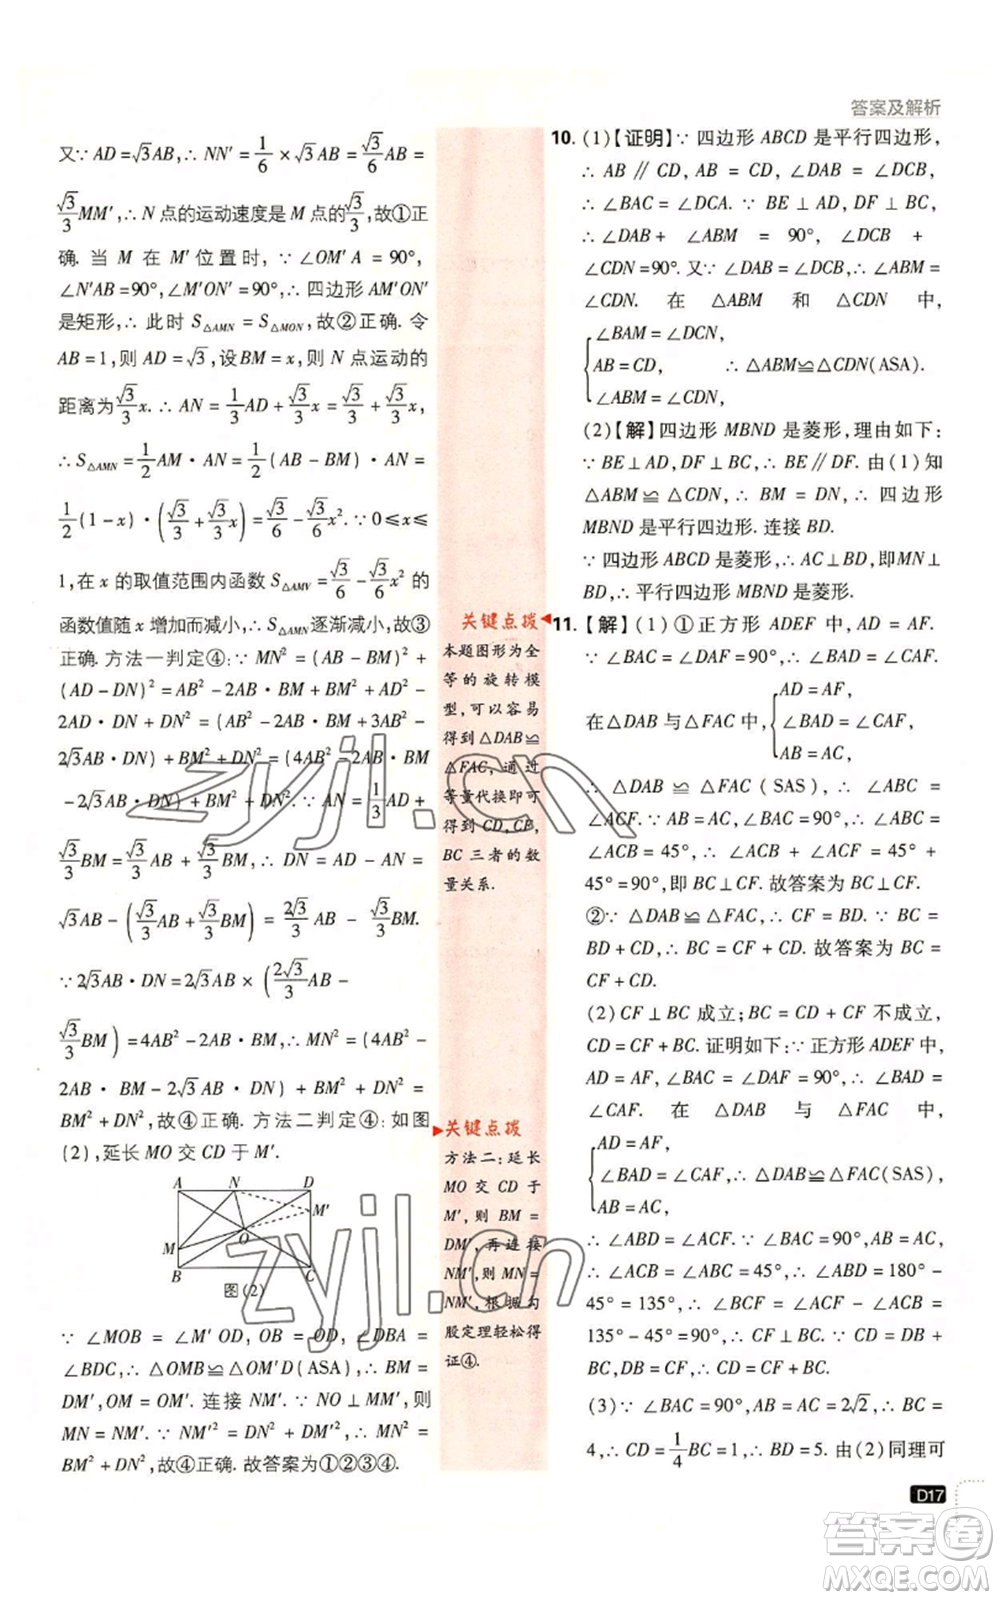 答案及解析
又∵ AD = √3AB,∴ NN′ = 1/6 × √3AB = √3/6 AB =
√3/3 MM′,∴ N 点的运动速度是 M 点的 √3/3,故①正
确. 当 M 在 M′位置时, ∵ ∠OM′A = 90°,
∠N′AB=90°,∠M′ON′=90°,∴ 四边形 AM′ON′
是矩形,∴ 此时 S△AMN = S△MON,故②正确. 令
AB=1,则 AD=√3,设 BM=x,则 N 点运动的
距离为 √3/3 x. ∴ AN = 1/3 AD + √3/3 x = √3/3 + √3/3 x,
∴ S△AMN = 1/2 AM · AN = 1/2 (AB − BM) · AN =
1/2 (1−x) · (√3/3 + √3/3 x) = √3/6 − √3/6 x². ∵ 0≤x≤
1,在 x 的取值范围内函数 S△AMV = √3/6 − √3/6 x² 的
函数值随 x 增加而减小,∴ S△AMN逐渐减小,故③
正确. 方法一判定④:∵ MN² = (AB − BM)² +
(AD−DN)² = AB² −2AB · BM+BM² +AD² −
2AD · DN + DN² = (AB² − 2AB · BM + 3AB² −
2√3AB · DN) + BM² + DN² = (4AB² −2AB · BM
−2√3AB · DN) + BM² + DN². ∵ AN = 1/3 AD +
√3/3 BM = √3/3 AB + √3/3 BM,∴ DN = AD − AN =
√3AB − (√3/3 AB + √3/3 BM) = 2√3/3 AB − √3/3 BM.
∵ 2√3AB · DN = 2√3AB × (2√3/3 AB −
√3/3 BM) = 4AB² −2AB · BM,∴ MN² = (4AB² −
2AB · BM − 2√3AB · DN) + BM² + DN² =
BM² +DN²,故④正确. 方法二判定④:如图
(2),延长 MO 交 CD 于 M′.
A N D
M′
O
M
B C
图(2)
∵ ∠MOB = ∠M′OD, OB = OD, ∠DBA =
∠BDC,∴ △OMB≌△OM′D(ASA),∴ BM =
DM′,OM=OM′. 连接 NM′. ∵ NO⊥MM′,则
MN = NM′. ∵ NM′² = DN² + DM′²,∴ MN² =
BM² +DN²,故④正确. 故答案为①②③④.
关键点拨
本题图形为全
等的旋转模
型,可以容易
得到△DAB≌
△FAC,通过
等量代换即可
得到 CD,CF,
BC 三者的数
量关系.
关键点拨
方法二:延长
MO 交 CD 于
M′,则 BM =
DM′,再连接
NM′,则 MN =
NM′,根据勾
股定理轻松得
证④.
10. (1)【证明】∵ 四边形 ABCD 是平行四边形,
∴ AB ∥ CD, AB = CD, ∠DAB = ∠DCB,
∴ ∠BAC = ∠DCA. ∵ BE⊥AD, DF⊥BC,
∴ ∠DAB + ∠ABM = 90°, ∠DCB +
∠CDN=90°. 又∵ ∠DAB=∠DCB,∴ ∠ABM=
∠CDN. 在 △ABM 和 △CDN 中,
∠BAM=∠DCN,
AB=CD, ∴ △ABM≌△CDN(ASA).
∠ABM=∠CDN,
(2)【解】四边形 MBND 是菱形,理由如下:
∵ BE⊥AD, DF⊥BC,∴ BE∥DF. 由(1)知
△ABM≌△CDN,∴ BM = DN,∴ 四边形
MBND 是平行四边形. 连接 BD.
∵ 四边形 ABCD 是菱形,∴ AC⊥BD,即MN⊥
BD,∴ 平行四边形 MBND 是菱形.
11.【解】(1)①正方形 ADEF 中,AD = AF.
∵ ∠BAC=∠DAF=90°,∴ ∠BAD=∠CAF.
AD=AF,
在△DAB 与△FAC 中, ∠BAD=∠CAF,
AB=AC,
∴ △DAB ≌ △FAC (SAS), ∴ ∠ABC =
∠ACF. ∵ AB = AC, ∠BAC = 90°,∴ ∠ABC =
∠ACB = 45°,∴ ∠ACB + ∠ACF = 45° +
45°=90°,即 BC⊥CF. 故答案为 BC⊥CF.
②∵ △DAB≌△FAC,∴ CF = BD. ∵ BC =
BD+CD,∴ BC=CF+CD. 故答案为 BC=
CF+CD.
(2)CF⊥BC 成立;BC = CD + CF 不成立,
CD=CF+BC. 证明如下:∵ 正方形 ADEF 中,
AD = AF, ∠BAC = ∠DAF = 90°,∴ ∠BAD =
∠CAF. 在 △DAB 与 △FAC 中,
AD=AF,
∠BAD=∠CAF,∴ △DAB≌△FAC(SAS),
AB=AC,
∴ ∠ABD = ∠ACF. ∵ ∠BAC = 90°, AB =
AC,∴ ∠ACB=∠ABC=45°,∴ ∠ABD=180°−
45° = 135°,∴ ∠BCF = ∠ACF − ∠ACB =
135°−45°=90°,∴ CF⊥BC. ∵ CD = DB+
BC,DB=CF,∴ CD=CF+BC.
(3)∵ ∠BAC=90°,AB=AC=2√2,∴ BC=
4,∴ CD = 1/4 BC = 1,∴ BD = 5. 由(2)同理可
D17
zyjl.cn
zyjl.cn
答案卷
MXQE.COM